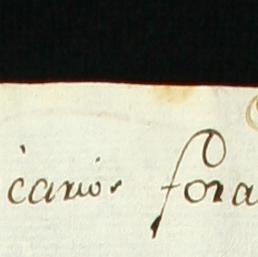 icarios fora